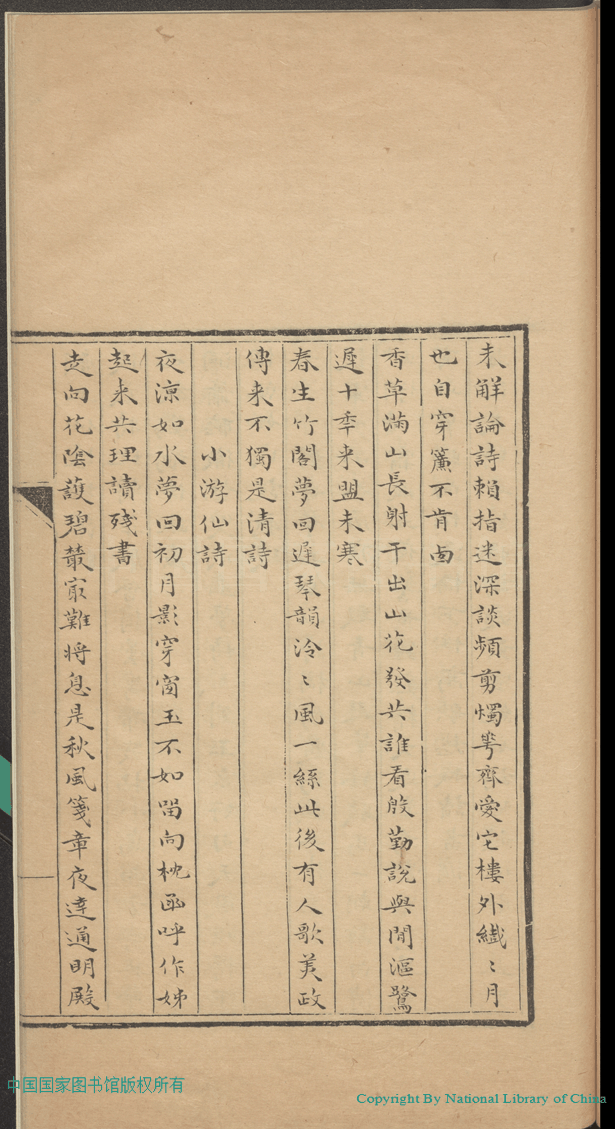 未解論詩賴指迷深談頻剪燭芎齊愛它樓外纖〻月
也自穿簾不肯卤
香草滿山長射干出山花發共誰看殷勤說與閒漚鷺
遲十季来盟未寒
春生竹閣夢回遲琴韻泠〻風一絲此後有人歌美政
傳来不獨是清詩
小游仙詩
夜涼如水夢回初月影穿窗玉不如畱向枕函呼作姊
起来共理讀殘書
走向花陰護碧叢㝡難將息是秋風箋章夜達通明殿
中国国家图书馆版权所有
Copyright By National Library of China